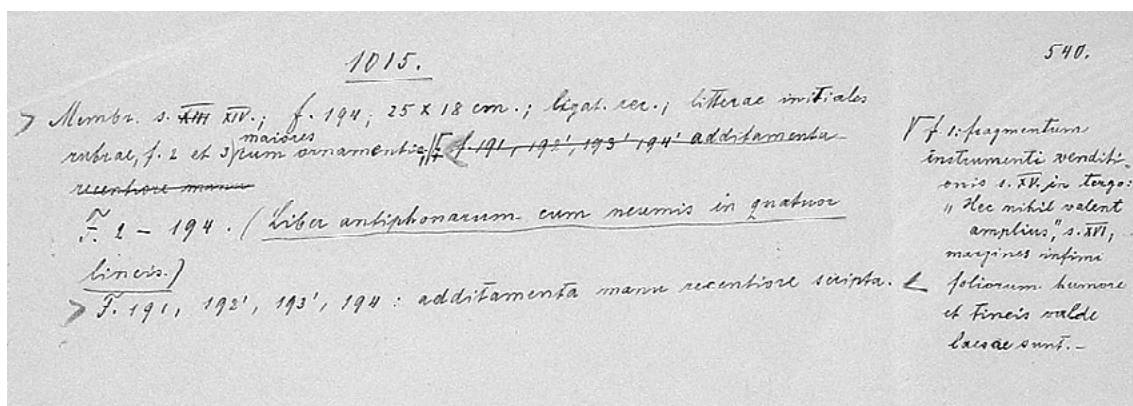 1015.
540.
Membr. s. XIII XIV.; f. 194; 25 x 18 cm.; ligat. rec.; litterae initiales
maiores
rubrae, f. 2 et 3 cum ornamentis, f. 191, 192', 193' 194' additamenta
recentiore manu
F. 2 – 194. (Liber antiphonarum cum neumis in quatuor
lineis.)
F. 191, 192', 193', 194: additamenta manu recentiore scripta.
f. 1: fragmentum
instrumenti venditi-
onis s. XV. in tergo:
"Hec nihil valent
amplius," s. XVI,
margines infimi
foliorum humore
et tineis valde
laesae sunt. –